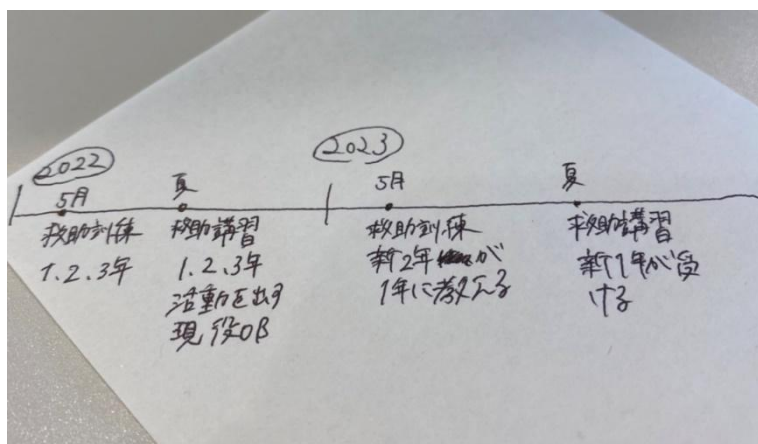 2022
5月
救助訓練
1、2、3年
夏
救助講習
1、2、3年
活動を出す
現役OB
2023
5月
救助訓練
新2年が
1年に教える
夏
救助講習
新1年が受
ける